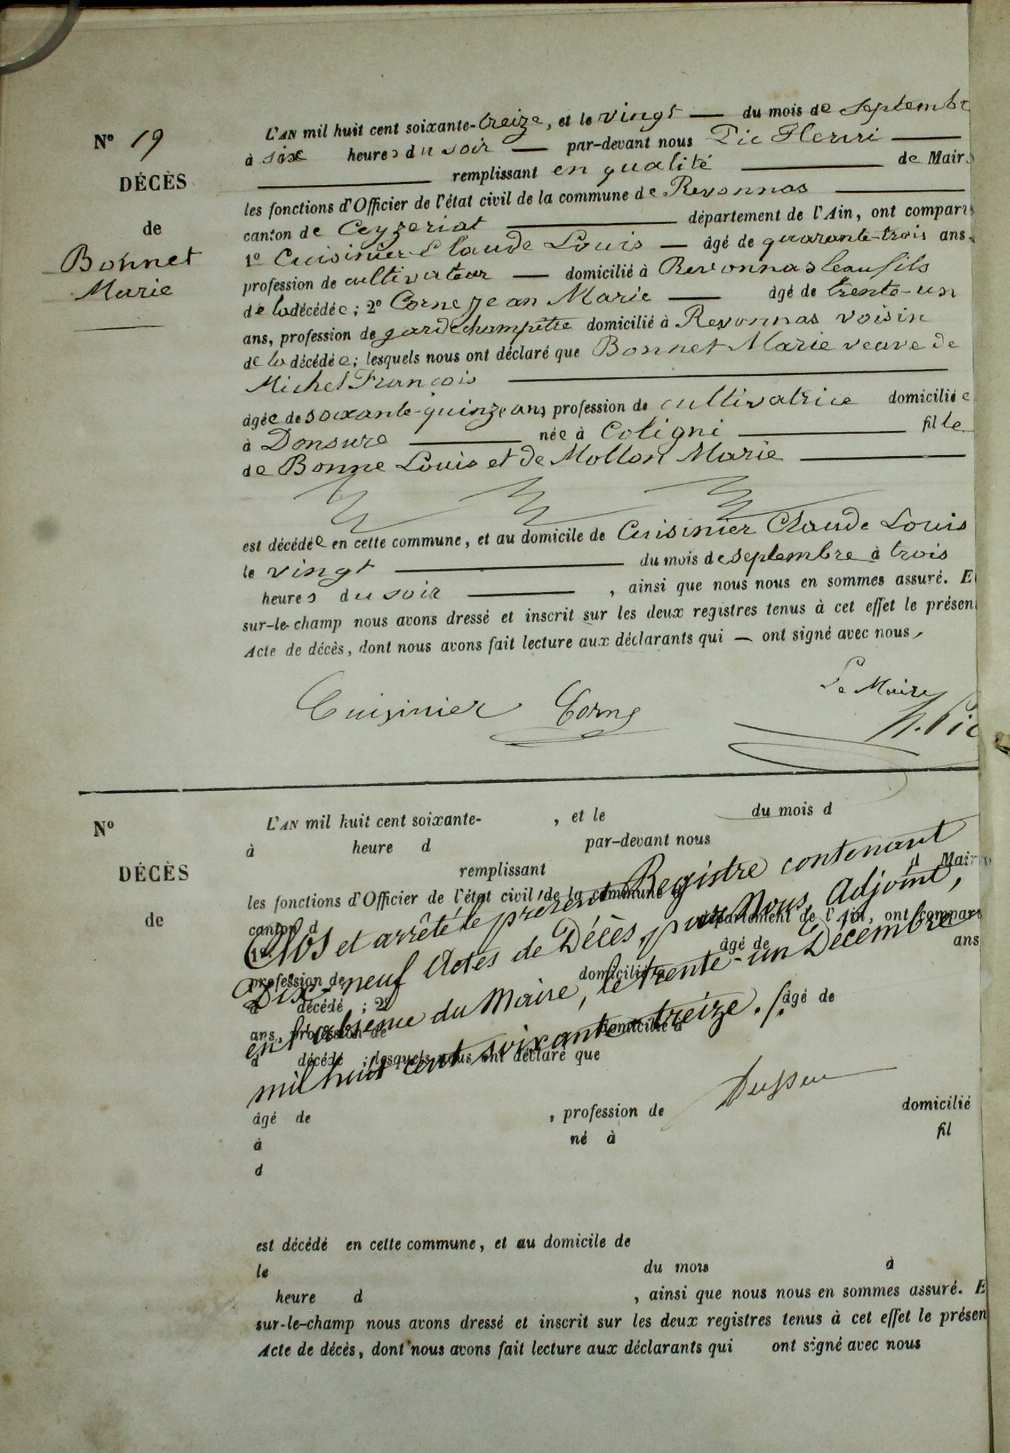 Nº 19
DÉCÈS
de
Bonnet
Marie
L'AN mil huit cent soixante-treize, et le vingt du mois de septembre
à six heures du soir par-devant nous Pic Henri
remplissant en qualité de Maire
les fonctions d'Officier de l'état civil de la commune de Revonnas
canton de Ceyzeriat département de l'Ain, ont comparu
1º Cuisinier Claude Louis âgé de quarante-trois ans,
profession de cultivateur domicilié à Revonnas beau fils
de la décédée; 2º Corne Jean Marie âgé de trente-un
ans, profession de garde champêtre domicilié à Revonnas voisin
de la décédée; lesquels nous ont déclaré que Bonnet Marie veuve de
Michel François
âgée de soixante-quinze ans profession de cultivatrice domiciliée
à Donsure née à Coligni fille
de Bonne Louis et de Mollon Marie
est décédée en cette commune, et au domicile de Cuisinier Claude Louis
le vingt du mois de septembre à trois
heures du soir , ainsi que nous nous en sommes assuré. E
sur-le-champ nous avons dressé et inscrit sur les deux registres tenus à cet effet le présen
Acte de décès, dont nous avons fait lecture aux déclarants qui — ont signé avec nous,
Le Maire
Cuisinier Corne H. Pic
Nº
DÉCÈS
de
L'AN mil huit cent soixante- , et le du mois d
à heure d par-devant nous
remplissant d Maire
les fonctions d'Officier de l'état civil de la commune d
canton d département de l'Ain, ont compar
1º âgé de ans
profession de domicilié à
d décédé ; 2º âgé de
ans, profession de domicilié à
d décédé ; lesquels nous ont déclaré que
Clos et arrêté le présent Registre contenant
Dix-neuf Actes de Décès, par Nous, Adjoint,
en l'absence du Maire, le trente-un Décembre
mil huit cent soixante-treize ./.
âgé de , profession de domicilié
à né à fil
d
est décédé en cette commune, et au domicile de
le du mois à
heure d , ainsi que nous nous en sommes assuré. E
sur-le-champ nous avons dressé et inscrit sur les deux registres tenus à cet effet le présen
Acte de décès, dont nous avons fait lecture aux déclarants qui ont signé avec nous